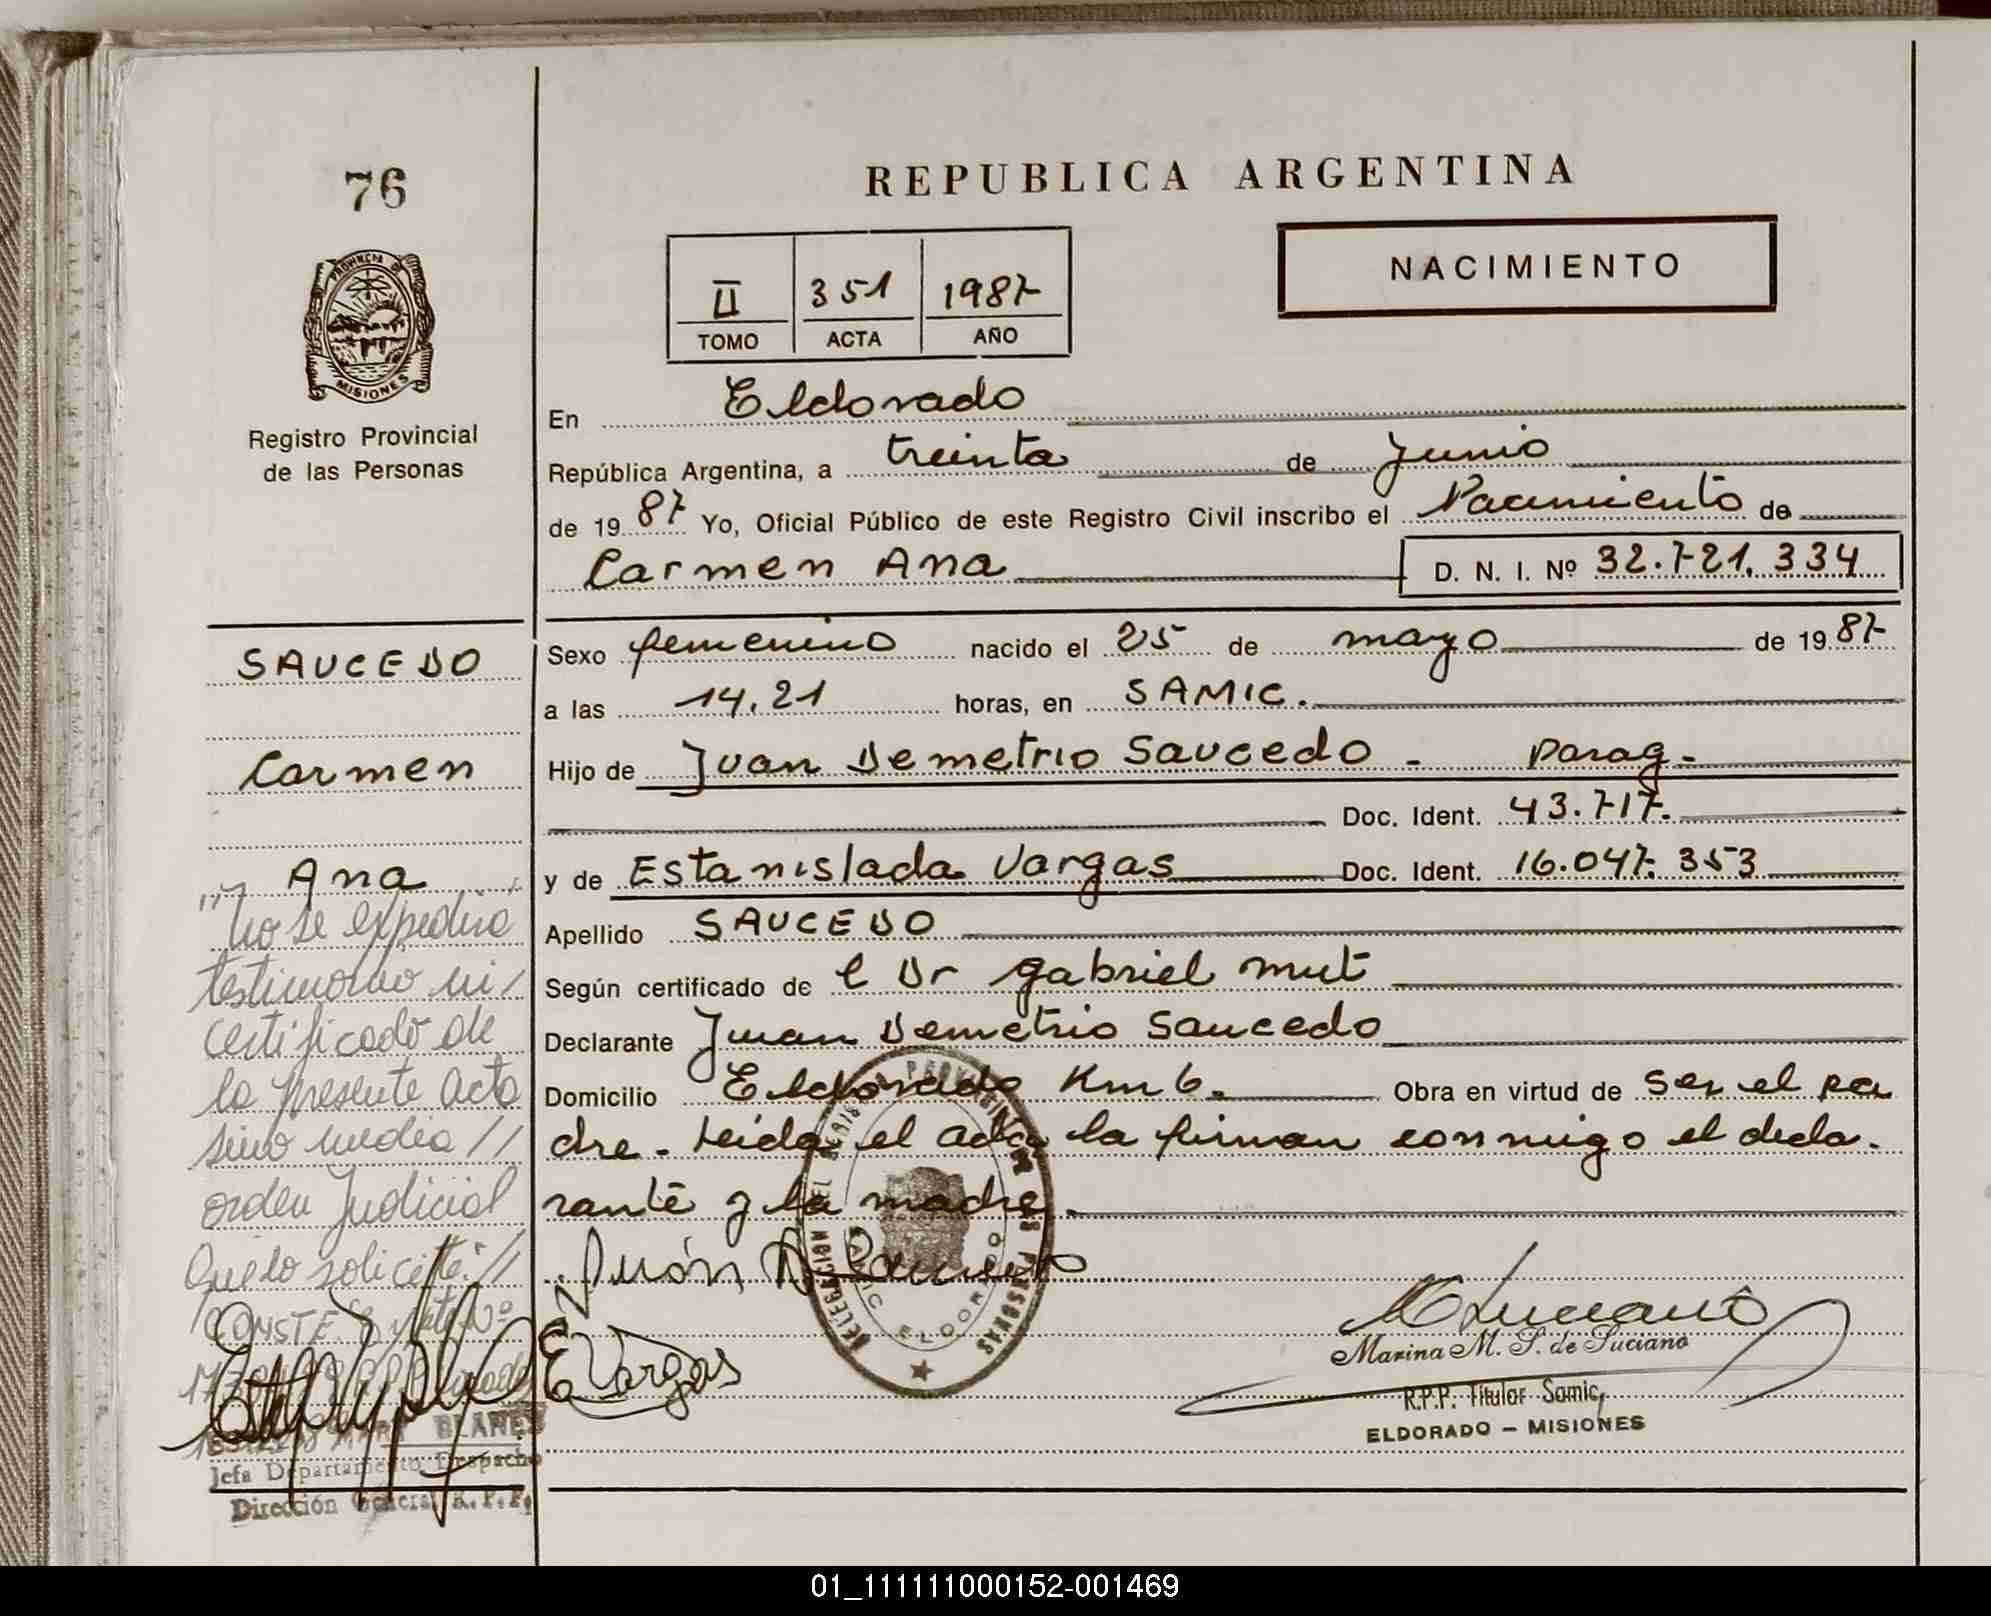 76
REPUBLICA ARGENTINA
NACIMIENTO
II 351 1987
TOMO ACTA AÑO
PROVINCIA DE
MISIONES
Registro Provincial
de las Personas
En Eldorado
República Argentina, a treinta de Junio
de 1987 Yo, Oficial Público de este Registro Civil inscribo el Nacimiento de
Carmen Ana D. N. I. Nº 32.721.334
SAUCEDO
Carmen
Ana
Sexo femenino nacido el 25 de mayo de 1987
a las 14,21 horas, en SAMIC.
Hijo de Juan Demetrio Saucedo - Parag.-
Doc. Ident. 43.717.
y de Estanislada Vargas Doc. Ident. 16.047.353
Apellido SAUCEDO
Según certificado de l Dr gabriel mut
Declarante Juan Demetrio Saucedo
Domicilio Eldorado Km 6. Obra en virtud de ser el pa
dre. Leida el acta la firman conmigo el decla-
rante y la madre.
"No se expedira
testimonio ni/
certificado de
la presente acta
sino media//
orden Judicial
que lo solicite"//
CONSTE
E Vargas
DELEGACION DEL REGISTRO PROVINCIAL DE LAS PERSONAS
SAMIC ELDORADO
Marina M. S. de Luciano
R.P.P. Titular Samic,
ELDORADO – MISIONES
BLANES
Jefa Departamento Despacho
Dirección General R. P. P.
01_111111000152-001469